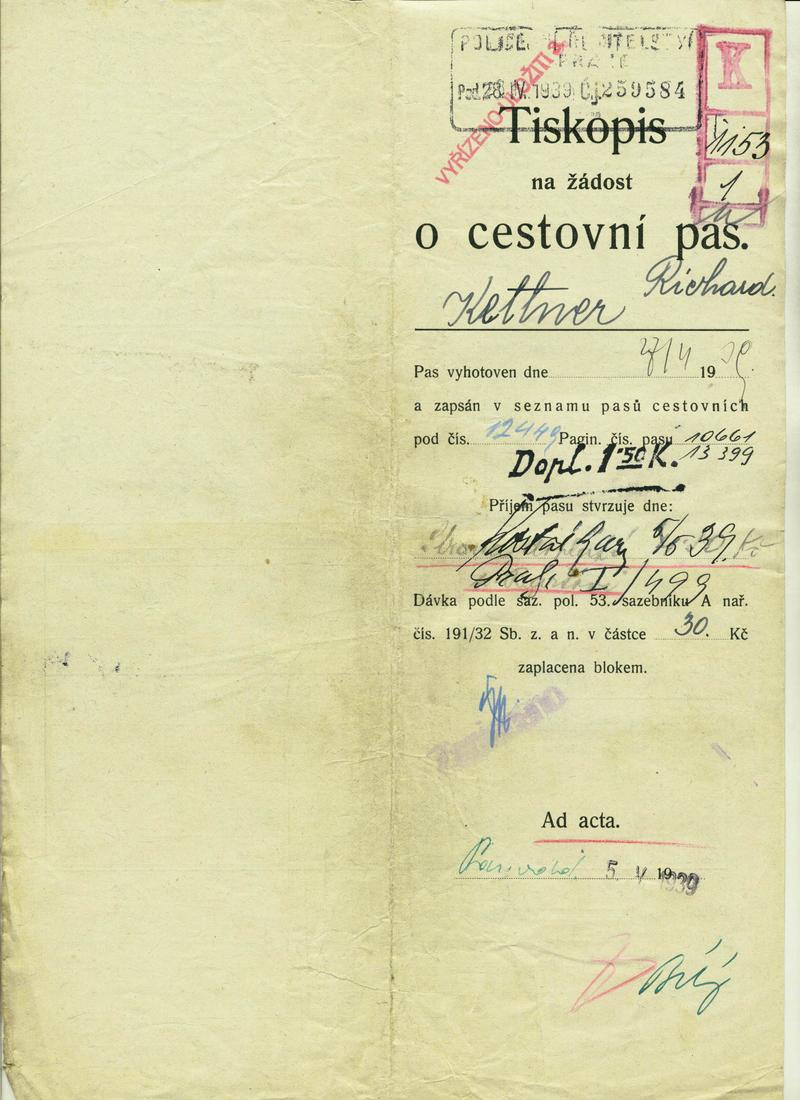 PRAZE
28. IV. 1939 Čj. 259584
VYŘÍZENO
K
1153
1
Tiskopis
na žádost
o cestovní pas.
Kettner Richard.
Pas vyhotoven dne 27/4 19 39
a zapsán v seznamu pasů cestovních
pod čís. 12449 Pagin. čís. pasu 10661
13399
Dopl. 1.50 K.
Příjem pasu stvrzuje dne:
5/5 39.
I/499
Dávka podle saz. pol. 53. sazebníku A nař.
čís. 191/32 Sb. z. a n. v částce 30. Kč
zaplacena blokem.
Ad acta.
5. V 1939